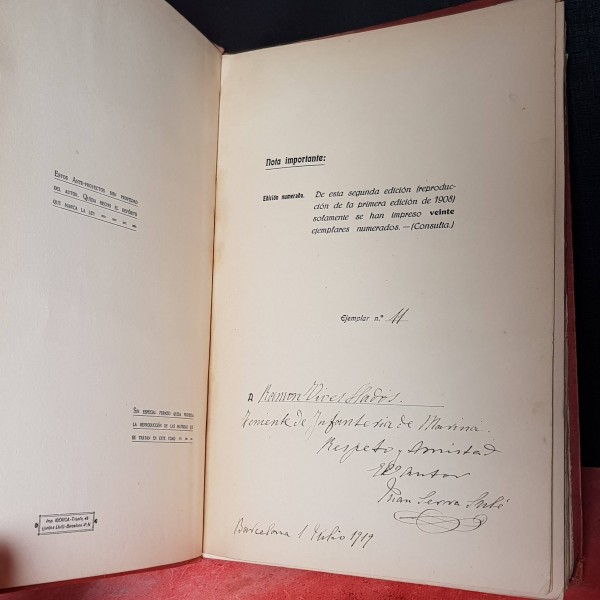 Estos Ante-proyectos son propiedad
del autor. Queda hecho el depósito
que marca la ley
Sin especial permiso queda prohibida
la reproducción de las materias que
se tratan en este tomo
Imp. IBÉRICA
Nota importante:
Edición numerada. De esta segunda edición (reproduc-
ción de la primera edición de 1908)
solamente se han impreso veinte
ejemplares numerados.—(Consulta.)
Ejemplar n.º 11
A Ramon Vives Lladós.
Teniente de Infanteria de Marina.
Respeto y Amistad
El autor
Juan Serra
Barcelona 1 Julio 1919